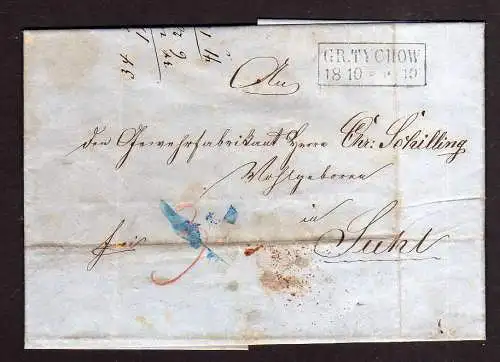 GR.TYCHOW
18 10
An
den Gewehrfabrikant Herrn Chr: Schilling
Wohlgeboren
in
frei
Suhl